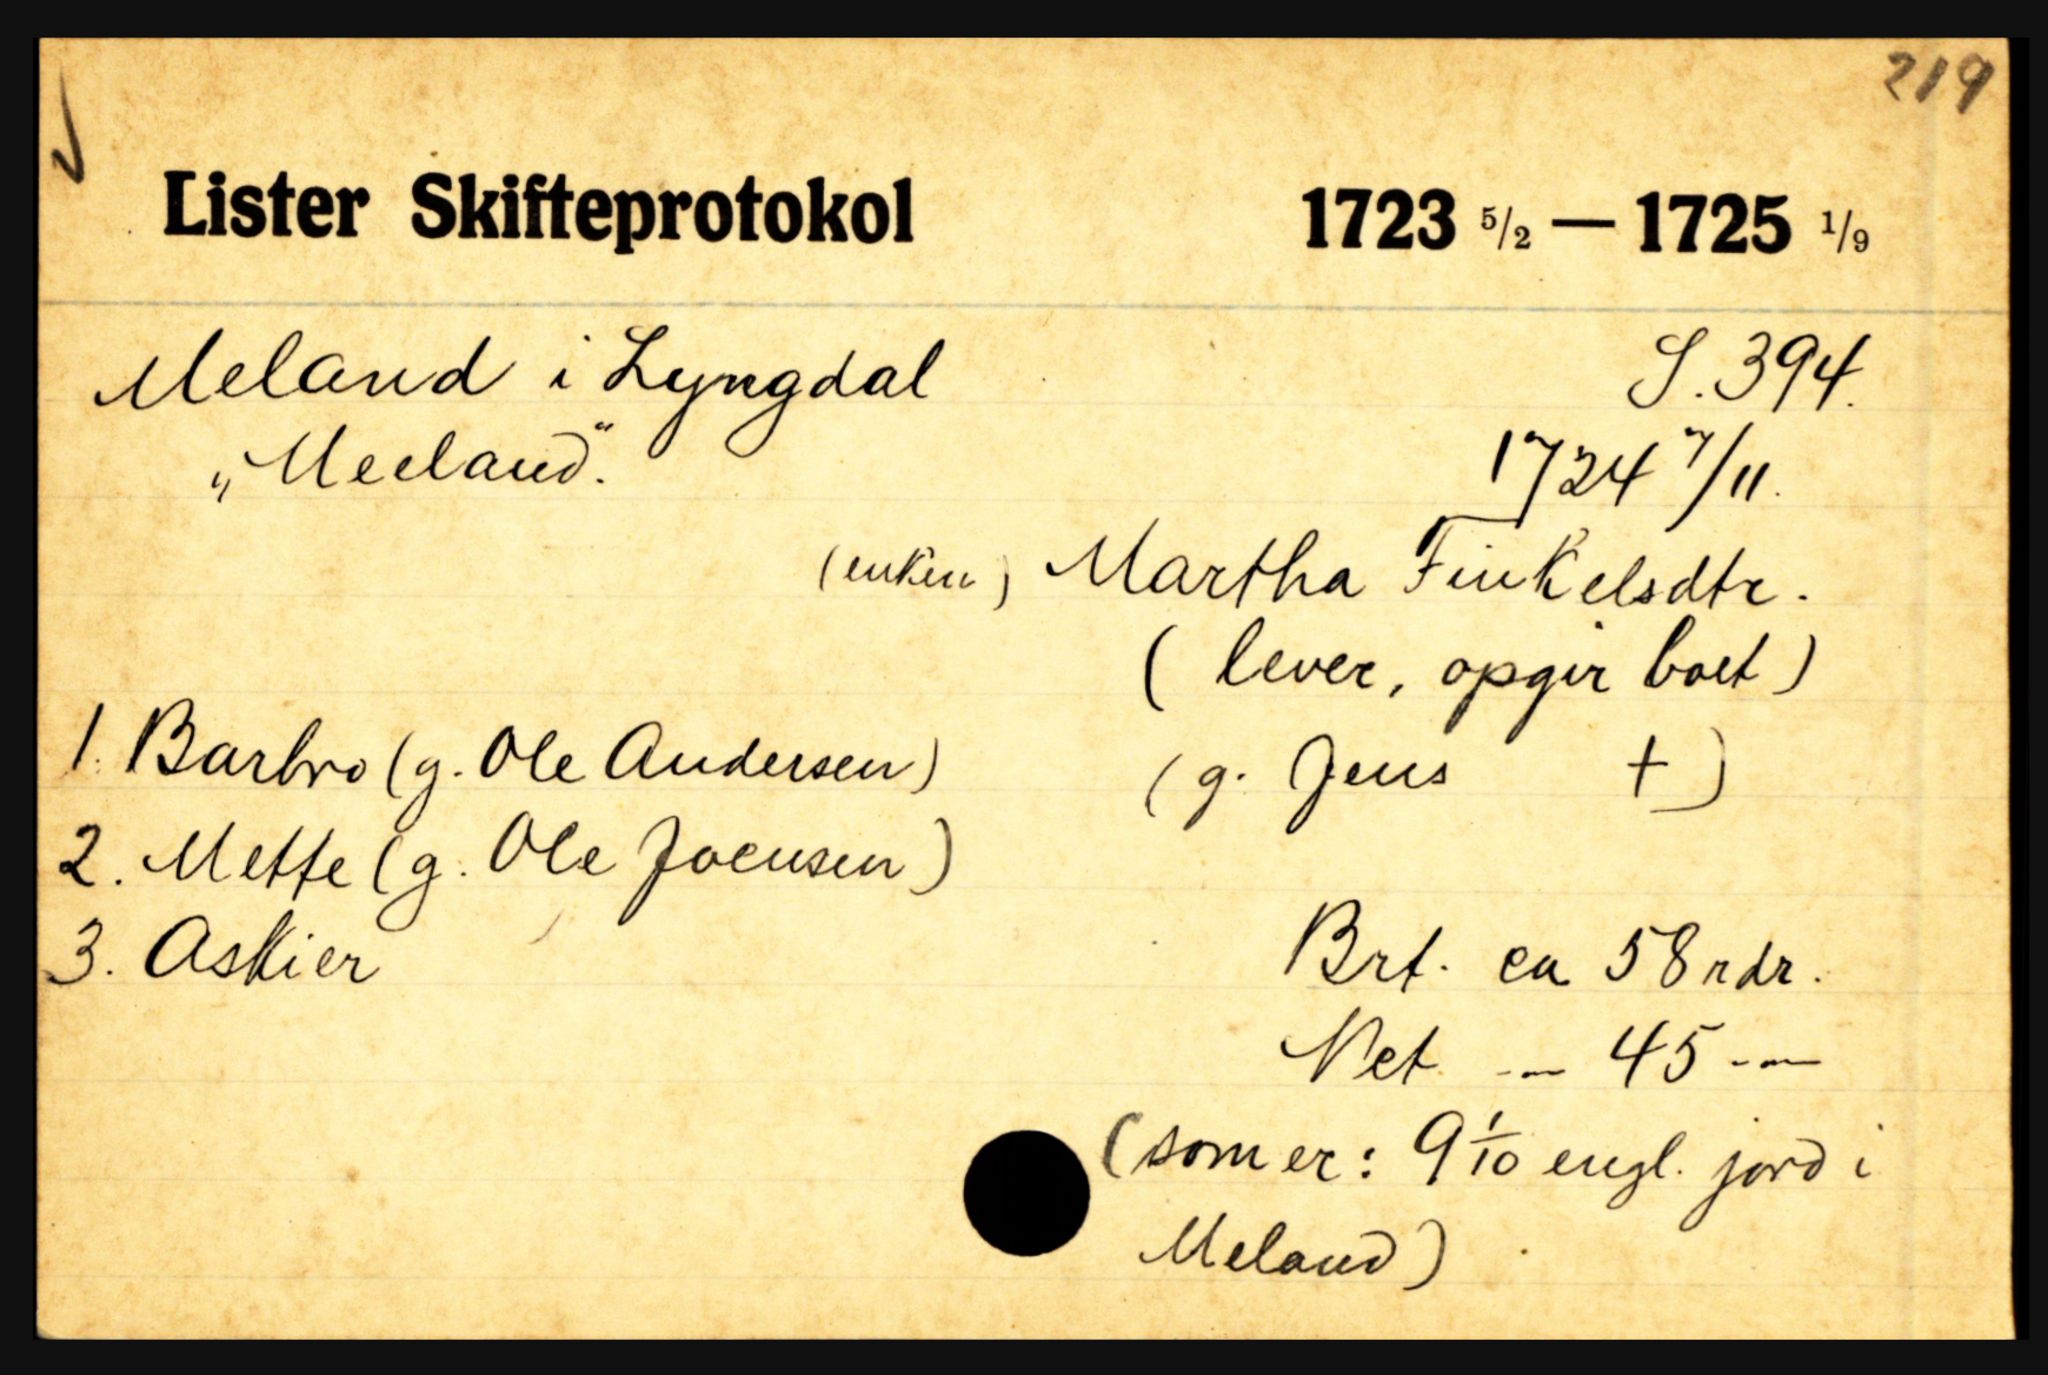 219
Lister Skifteprotokol 1723 5/2 — 1725 1/9
Meland i Lyngdal S. 394.
„Meeland". 1724 7/11.
(enken) Martha Finkelsdtr.
(lever, opgir boet)
1. Barbro (g. Ole Andersen) (g. Jens +)
2. Mette (g. Ole Joensen)
3. Askier Brt. ca 58 rdr.
Net — 45 —
(som er: 9 1/10 engl. jord i
Meland)